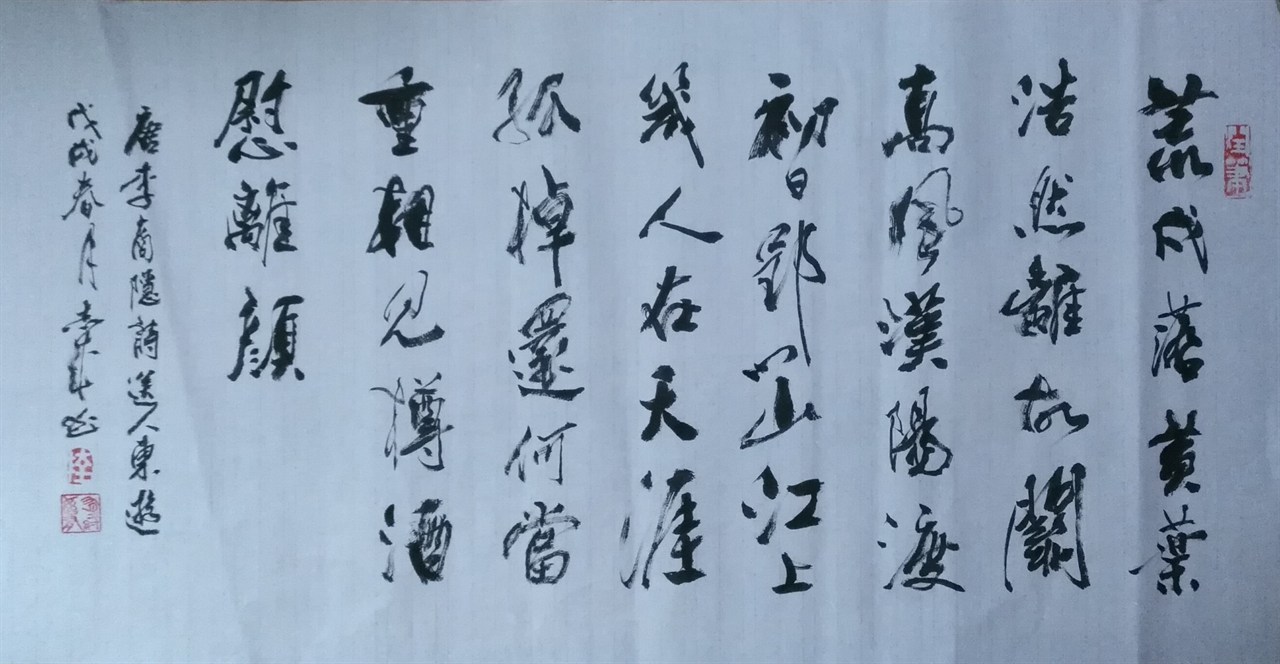 荒戍落黄葉
浩然離故關
高風漢陽渡
初日郢門山江上
幾人在天涯
孤棹還何當
重相見樽酒
慰離顔
唐李商隱詩送人東遊
戊戌春月